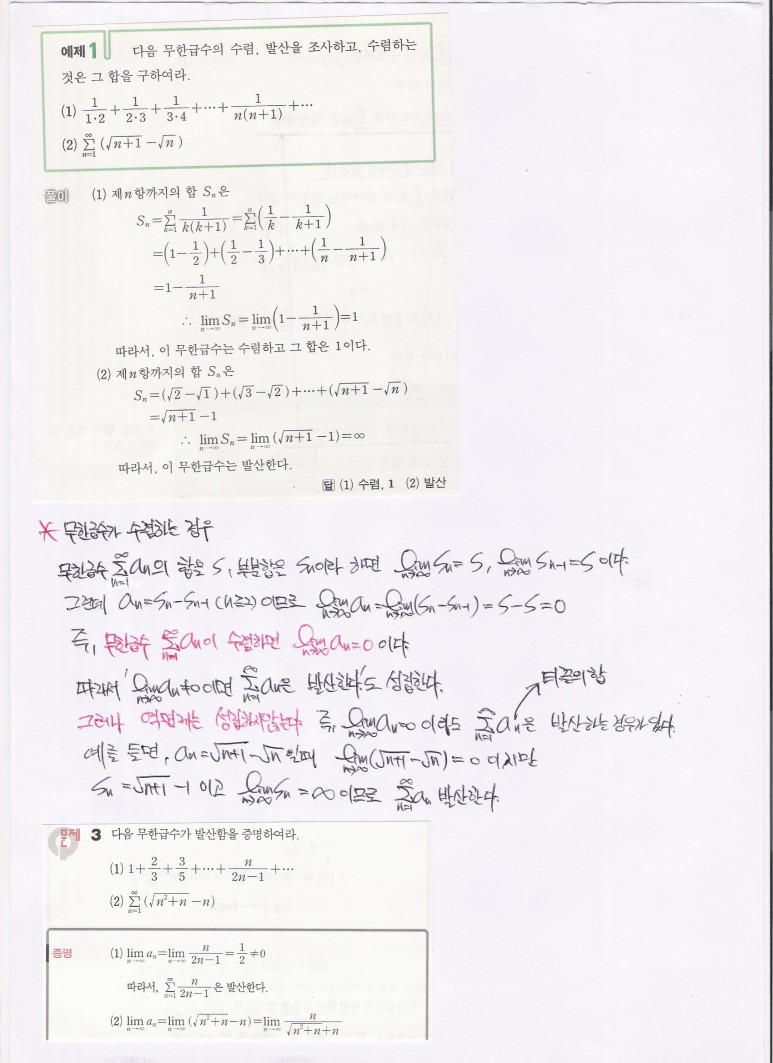 예제 1 다음 무한급수의 수렴, 발산을 조사하고, 수렴하는
것은 그 합을 구하여라.
(1) 1/1·2 + 1/2·3 + 1/3·4 + ··· + 1/n(n+1) + ···
(2) ∑_{n=1}^{∞} (√(n+1) − √n)
풀이 (1) 제n항까지의 합 Sₙ은
Sₙ = ∑_{k=1}^{n} 1/k(k+1) = ∑_{k=1}^{n} (1/k − 1/(k+1))
= (1 − 1/2) + (1/2 − 1/3) + ··· + (1/n − 1/(n+1))
= 1 − 1/(n+1)
∴ lim_{n→∞} Sₙ = lim_{n→∞} (1 − 1/(n+1)) = 1
따라서, 이 무한급수는 수렴하고 그 합은 1이다.
(2) 제n항까지의 합 Sₙ은
Sₙ = (√2 − √1) + (√3 − √2) + ··· + (√(n+1) − √n)
= √(n+1) − 1
∴ lim_{n→∞} Sₙ = lim_{n→∞} (√(n+1) − 1) = ∞
따라서, 이 무한급수는 발산한다.
답 (1) 수렴, 1 (2) 발산
* 무한급수가 수렴하는 경우
무한급수 ∑_{n=1}^{∞} aₙ의 합을 S, 부분합을 Sₙ이라 하면 lim_{n→∞} Sₙ = S, lim_{n→∞} Sₙ₋₁ = S 이다.
그런데 aₙ = Sₙ − Sₙ₋₁ (n≥2) 이므로 lim_{n→∞} aₙ = lim_{n→∞} (Sₙ − Sₙ₋₁) = S − S = 0
즉, 무한급수 ∑_{n=1}^{∞} aₙ이 수렴하면 lim_{n→∞} aₙ = 0 이다.
따라서 'lim_{n→∞} aₙ ≠ 0 이면 ∑_{n=1}^{∞} aₙ은 발산한다'도 성립한다.
티끌의 합
그러나 역명제는 성립하지 않는다. 즉, lim_{n→∞} aₙ = 0 이어도 ∑_{n=1}^{∞} aₙ은 발산하는 경우가 있다.
예를 들면, aₙ = √(n+1) − √n 일때 lim_{n→∞} (√(n+1) − √n) = 0 이지만
Sₙ = √(n+1) − 1 이고 lim_{n→∞} Sₙ = ∞ 이므로 ∑_{n=1}^{∞} aₙ 발산한다.
문제 3 다음 무한급수가 발산함을 증명하여라.
(1) 1 + 2/3 + 3/5 + ··· + n/(2n−1) + ···
(2) ∑_{n=1}^{∞} (√(n²+n) − n)
증명 (1) lim_{n→∞} aₙ = lim_{n→∞} n/(2n−1) = 1/2 ≠ 0
따라서, ∑_{n=1}^{∞} n/(2n−1) 은 발산한다.
(2) lim_{n→∞} aₙ = lim_{n→∞} (√(n²+n) − n) = lim_{n→∞} n/(√(n²+n) + n)